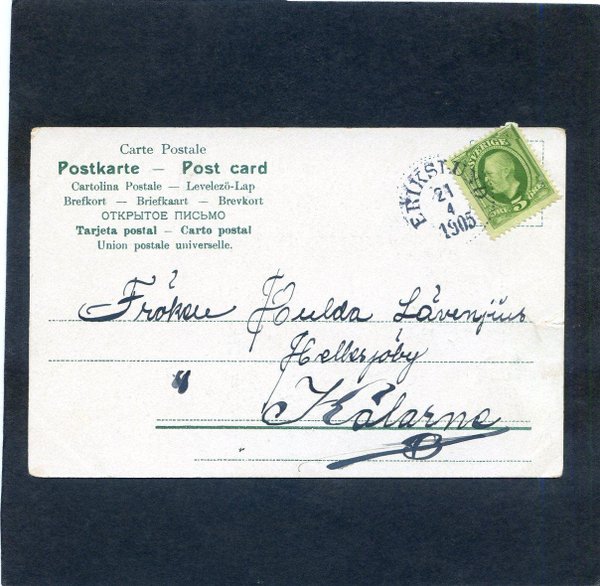 Carte Postale
Postkarte — Post card
Cartolina Postale — Levelező-Lap
Brefkort — Briefkaart — Brevkort
ОТКРЫТОЕ ПИСЬМО
Tarjeta postal — Carto postal
Union postale universelle.
SVERIGE
5
ÖRE
21
4
1905
Fröken Hulda Lävenjius
Hellsjöby
Kälarne